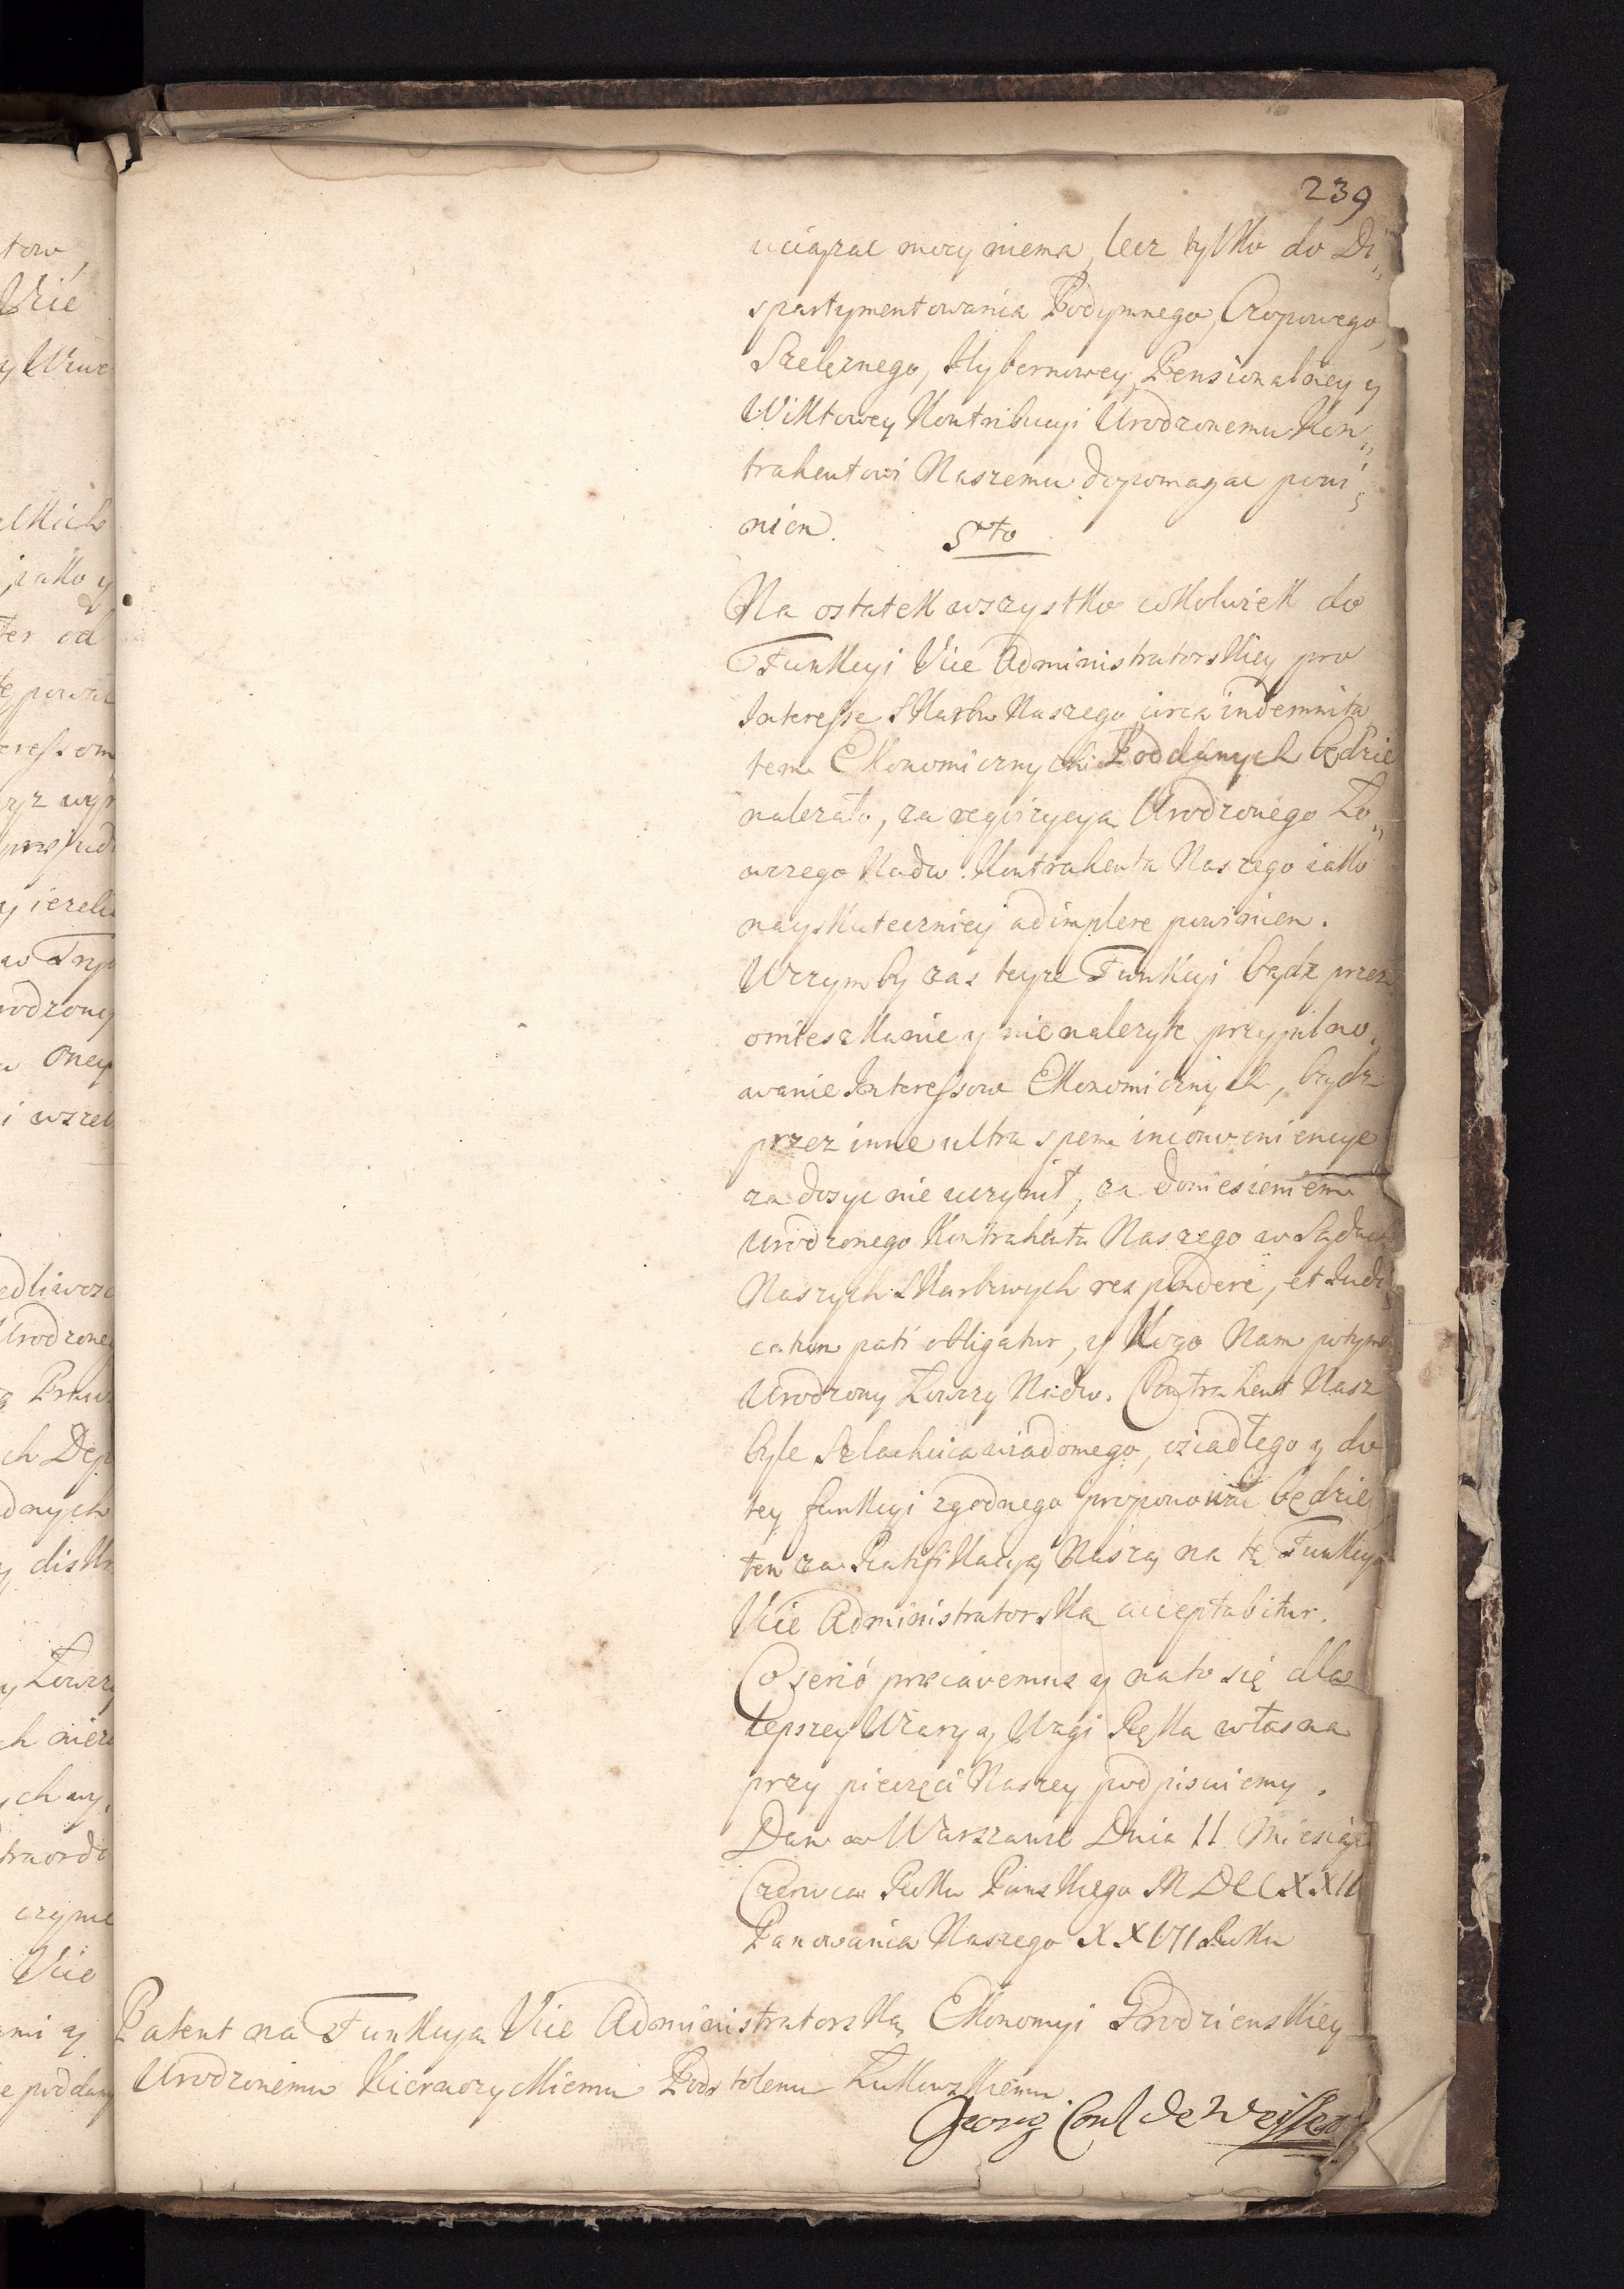 239
uciązac mocy niema, lecz tylko do Di„
spartymentowania Podymnego, Czopowego,
Szelęznego, Hybernowey, Pensionalney y
Wiktowey Kontribucyi Urodzonemu Kon„
trahentowi Naszemu dopomagac powi„
nien.
5to
Na ostatek wszystko cokolwiek do
Funkcyi Vice Administratorskiey pro
Interesse Skarbu Naszego circa indemnita
tem Ekonomicznych Poddanych będzie
nalezało, za requizycyą Urodzonego Ło„
wczego Nadw: Kontrahenta Naszego iako
nayskuteczniey adimplere powinien.
Wczym by zas teyze Funkcyi bądz przez
omieszkanie y nienalezyte przypilno„
wanie Interessow Ekonomicznych, bądz
przez inne ultra spem inconveniencye
za dosyc nie uczynił, za doniesieniem
Urodzonego Kontrahenta Naszego w Sądach
Naszych Skarbowych respondere, et Judi„
catum pati obligatur, y Kogo Nam potym
Urodzony Łowczy Nadw. Contrahent Nasz
byle Szlachcica wiadomego, osiadłego y do
tey funkcyi zgodnego proponowac będzie,
ten za Ratifikacyą Naszą na tę Funkcyą
Vice Administratorską acceptabitur.
Co serió præcavemus y na to się dla
lepszey Wiary y Wagi Ręką własna
przy pieczęci Naszey podpisuiemy.
Dan w Warszawie Dnia 11 Miesiąca
Czerwca Roku Panskiego MDCCXXII
Panowania Naszego XXVII Roku
Patent na Funkcyą Vice Administratorską Ekonomyi Grodzienskiey
Urodzonemu Podstolemu Łukowskiemu
Georg